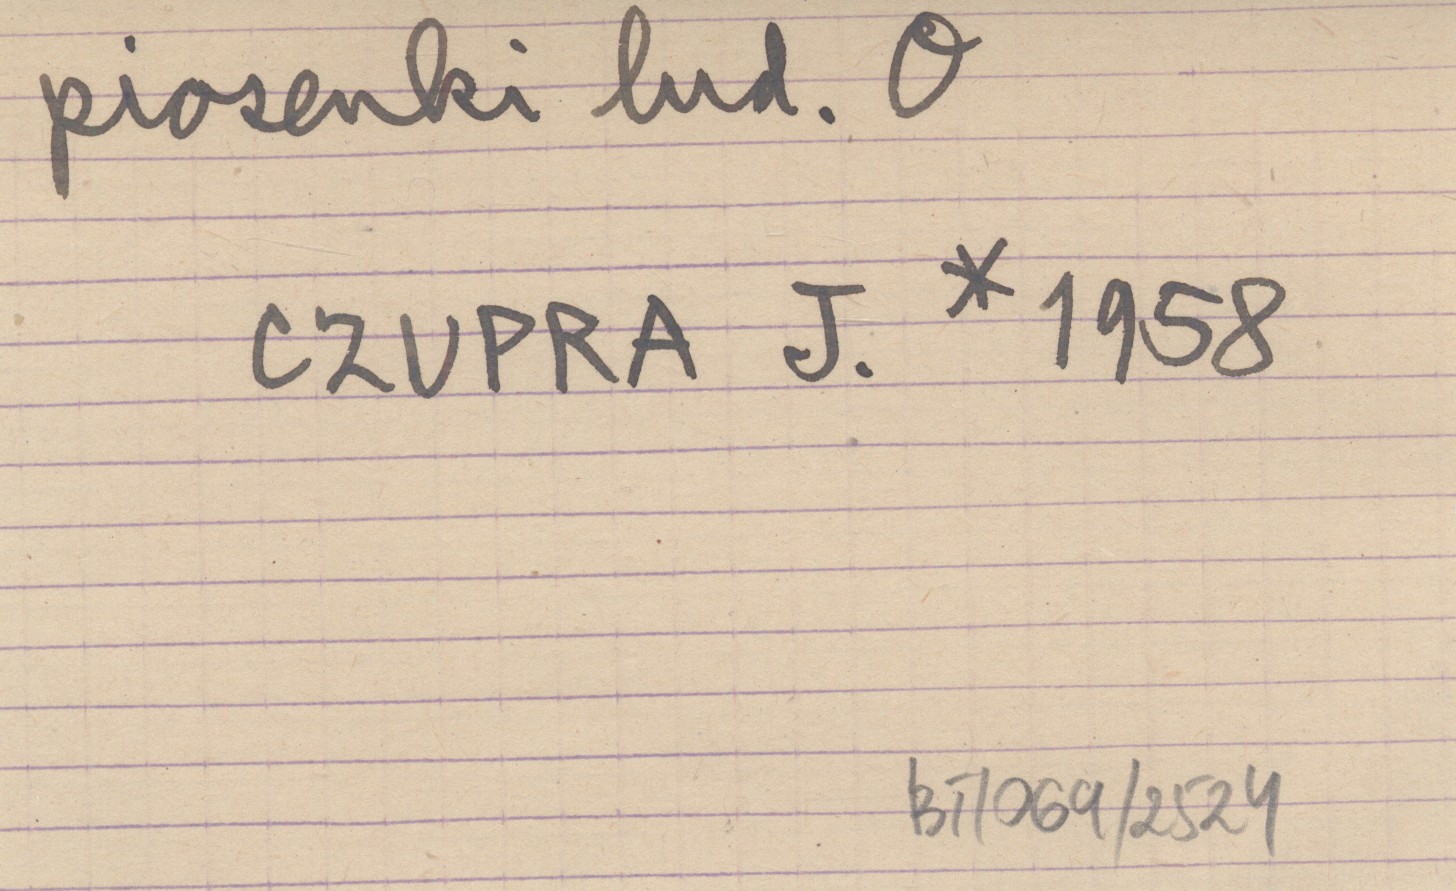 piosenki lud. O
CZUPRA J. *1958
BT/069/2524